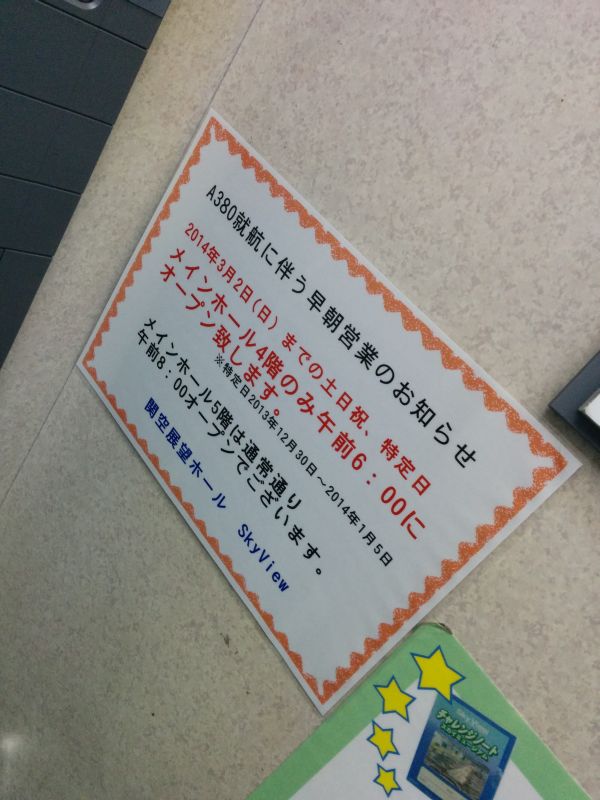 A380就航に伴う早朝営業のお知らせ
2014年3月2日(日)までの土日祝、特定日
メインホール4階のみ午前6:00に
オープン致します。
※特定日2013年12月30日~2014年1月5日
メインホール5階は通常通り
午前8:00オープンでございます。
関空展望ホール SkyView
チャレンジノート
スカイミュージアム